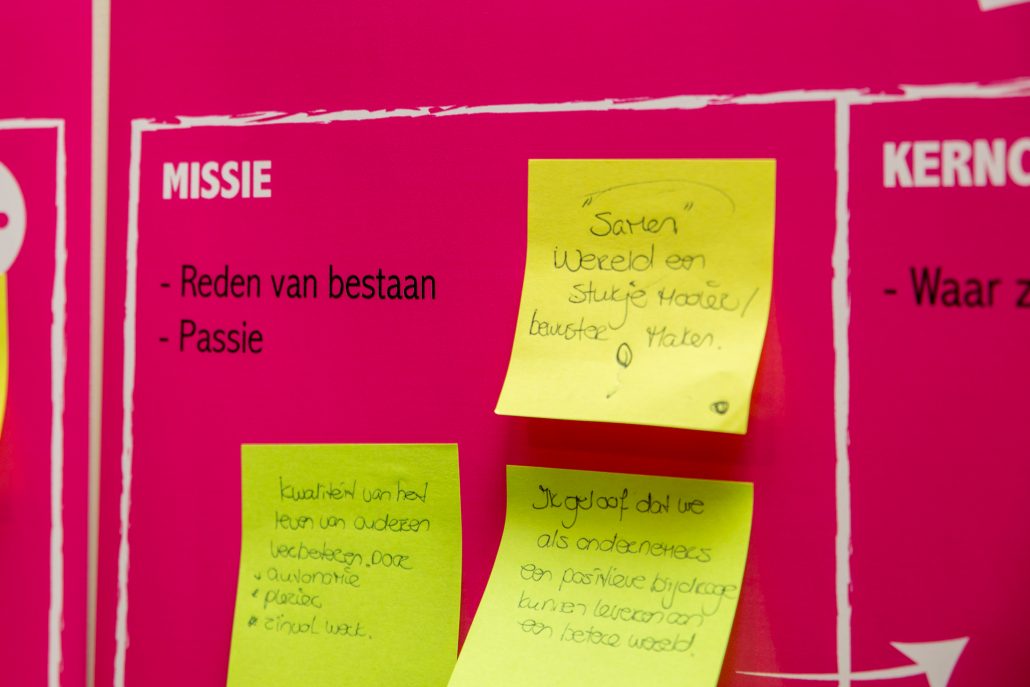 MISSIE
- Reden van bestaan
- Passie
"Samen"
Wereld een
stukje mooier/
bewuster maken.
kwaliteit van het
leven van anderen
verbeteren. Door
autonomie
plezier
zinvol werk.
Ik geloof dat we
als ondernemers
een positieve bijdrage
kunnen leveren aan
een betere wereld.
KERNC
- Waar z